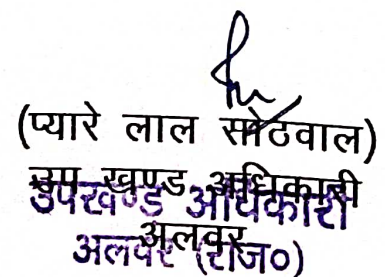 (प्यारे लाल सोठवाल)
उप खण्ड अधिकारी
उपखण्ड अधिकारी
अलवर
अलवर (राज०)